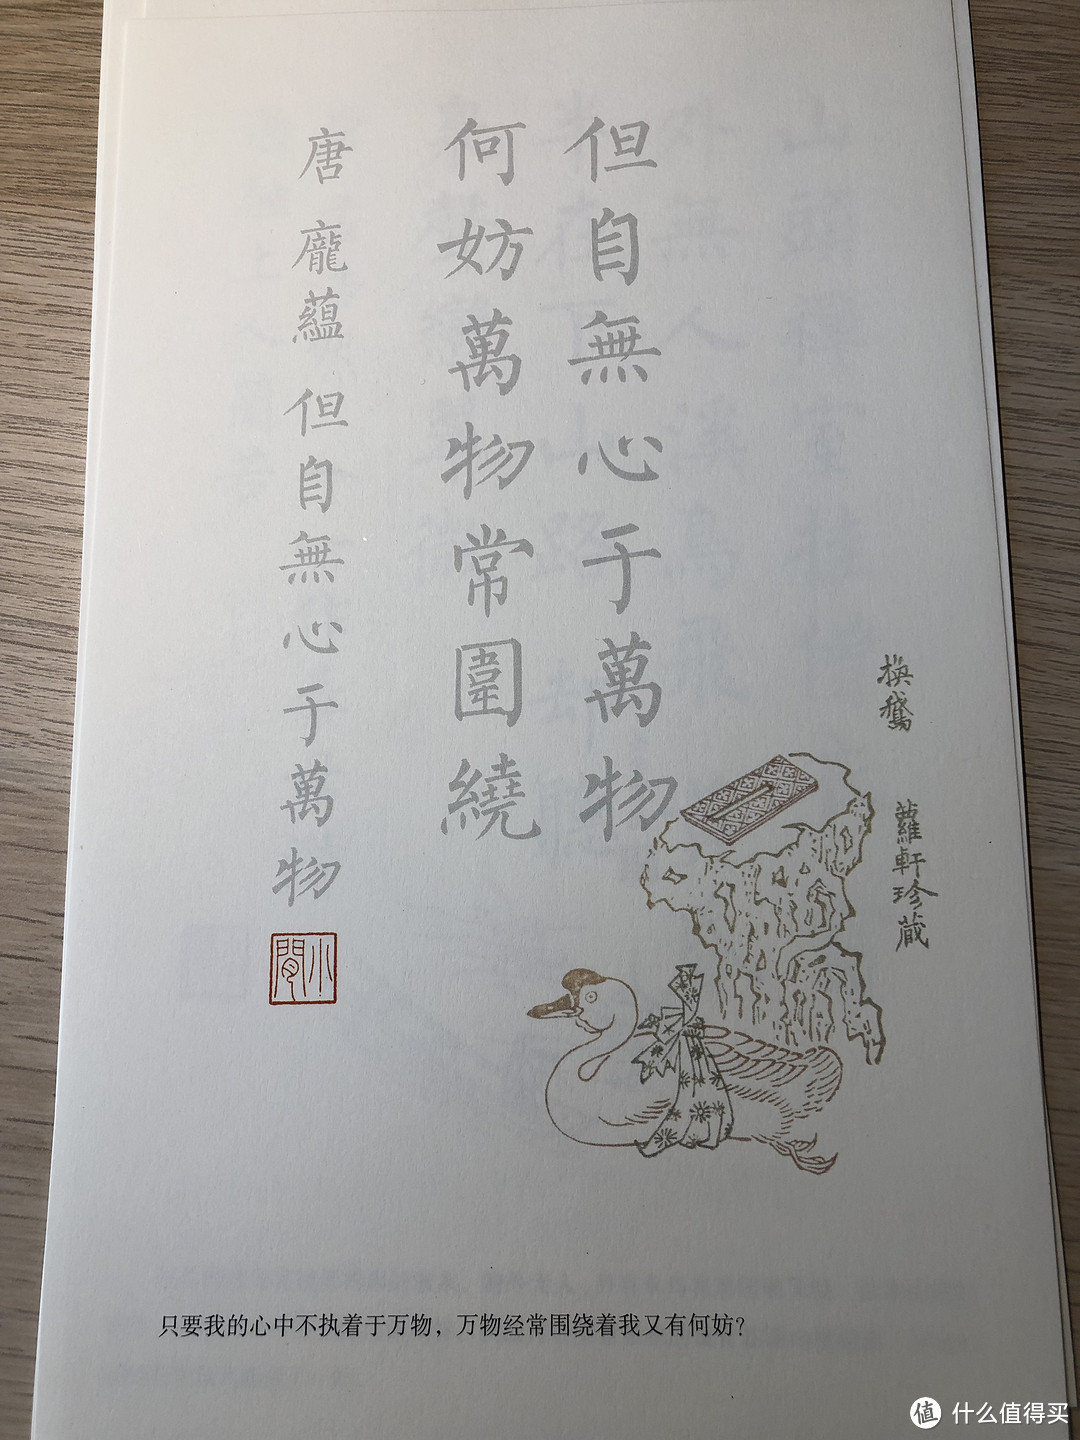 但自無心于萬物
何妨萬物常圍繞
唐 龐蘊 但自無心于萬物
小閒
換鵞
蘿軒珍藏
只要我的心中不执着于万物，万物经常围绕着我又有何妨？
值 什么值得买